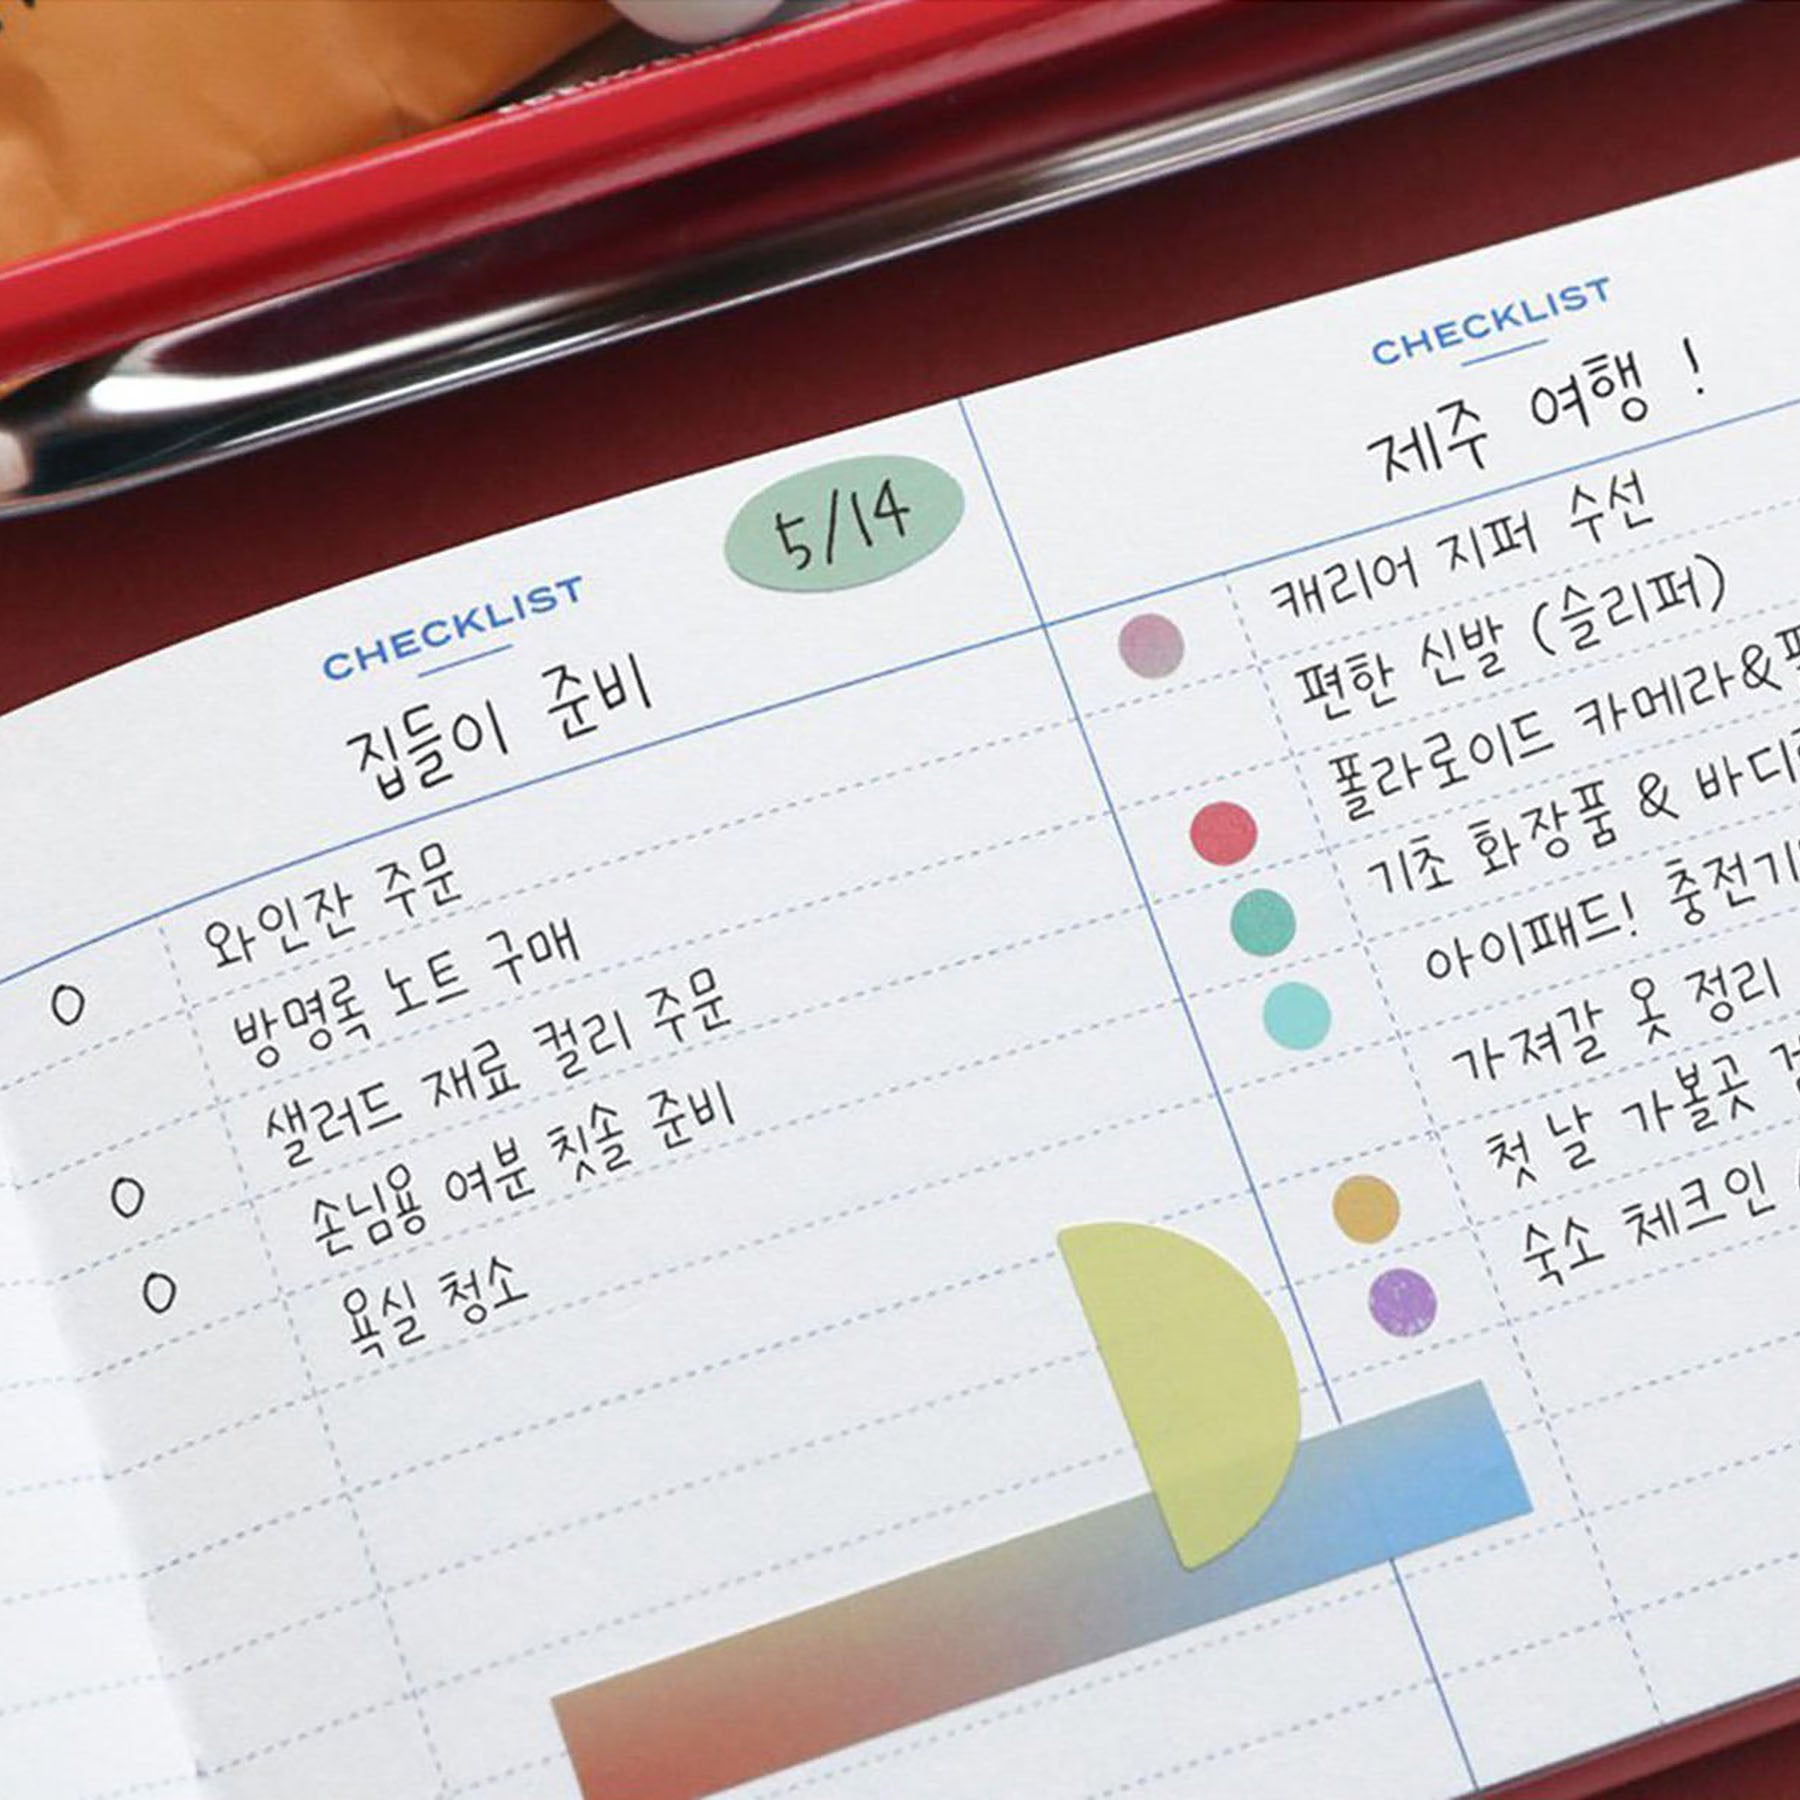 5/14
CHECKLIST
집들이 준비
O 와인잔 주문
방명록 노트 구매
O 샐러드 재료 컬리 주문
O 손님용 여분 칫솔 준비
욕실 청소
CHECKLIST
제주 여행 !
캐리어 지퍼 수선
편한 신발 (슬리퍼)
폴라로이드 카메라&
기초 화장품 & 바디
아이패드! 충전기
가져갈 옷 정리
첫 날 가볼곳
숙소 체크인